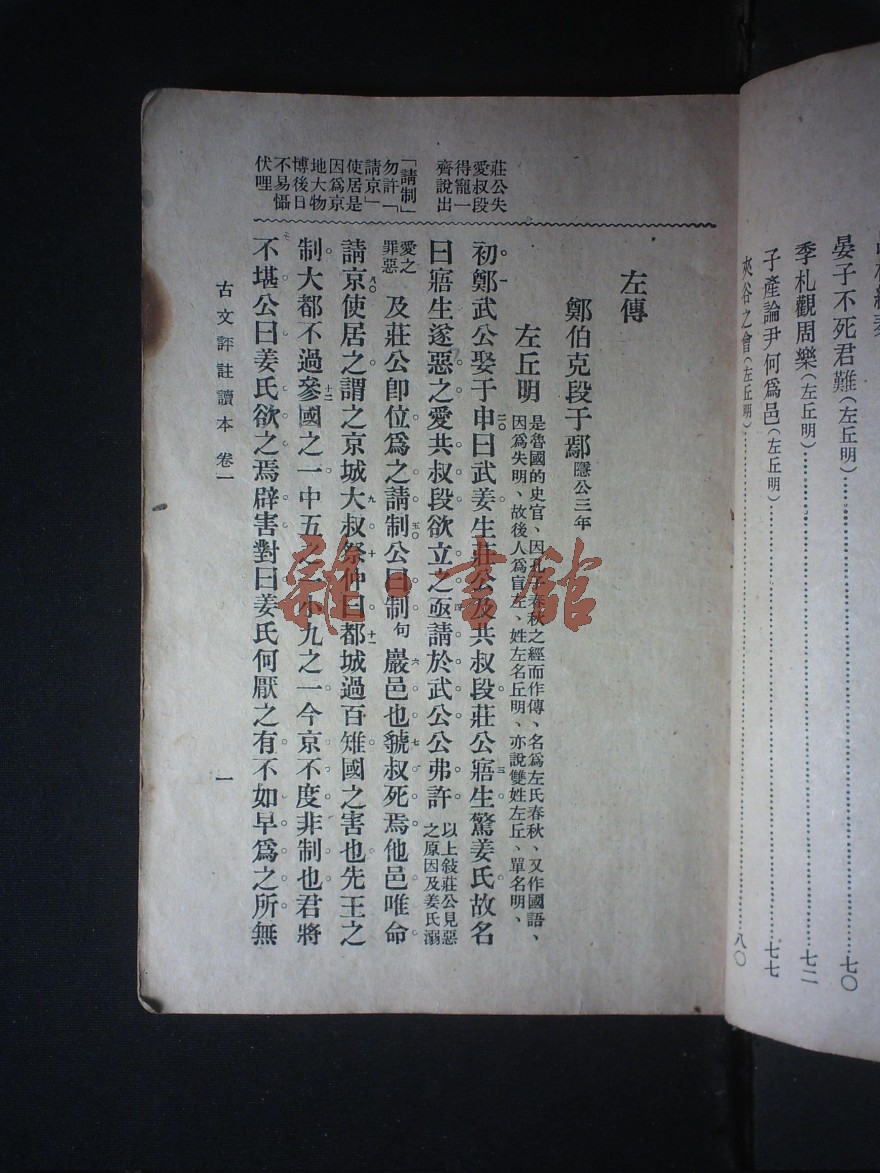 晏子不死君難(左丘明)……七〇
季札觀周樂(左丘明)……七二
子產論尹何爲邑(左丘明)……七七
夾谷之會(左丘明)……八〇
莊公失
愛叔段
得寵一
齊說出
「請制」
勿許「
請京」
使居是
因爲京
地大物
博後日
不易懾
伏哩
左傳
鄭伯克段于鄢 隱公三年
左丘明 是魯國的史官、因孔子春秋之經而作傳、名爲左氏春秋、又作國語、
因爲失明、故後人爲盲左、姓左名丘明、亦說雙姓左丘、單名明、
初一鄭武公娶于申二〇曰武姜生莊公及共叔段莊公寤三生驚姜氏故名
曰寤生遂惡之愛共叔段欲立之亟四請於武公公弗許 以上敍莊公見惡
之原因及姜氏溺
愛之
罪惡 及莊公卽位爲之請制五〇公曰制句 巖六邑也虢七叔死焉他邑唯命
請京八〇使居之謂之京城大叔九祭十仲曰都十一城過百雉國之害也先王之
制大都不過參十二國之一中五之一小九之一今京不度非制也君將
不堪公曰姜氏欲之焉辟害對曰姜氏何厭之有不如早爲之所無
古文評註讀本 卷一
一
雜·書館